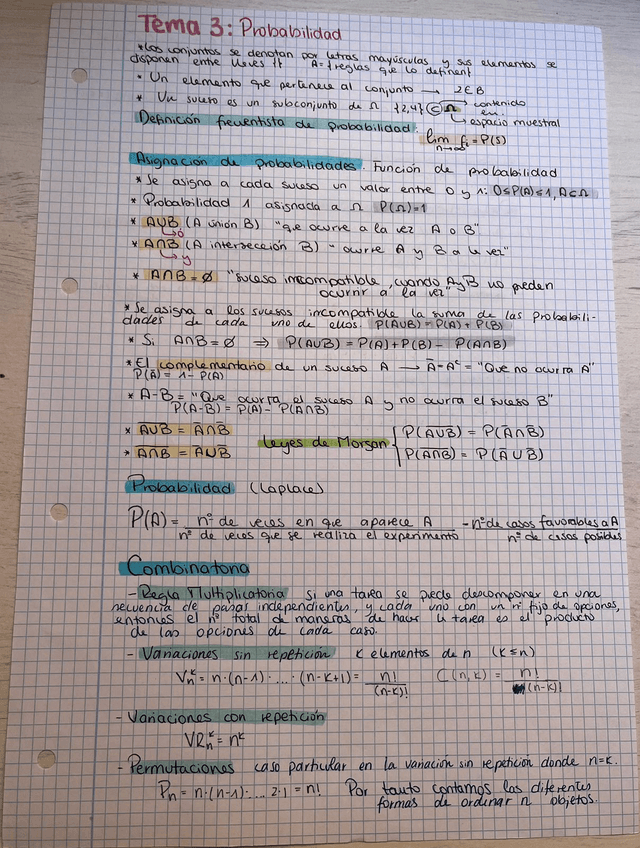 Tema 3: Probabilidad
* Los conjuntos se denotan por letras mayúsculas y sus elementos se
disponen entre llaves {} A={reglas que lo definen}
* Un elemento que pertenece al conjunto → 2∈B
* Un suceso es un subconjunto de Ω {2,4}⊂Ω → contenido en.
↳ espacio muestral
Definición frecuentista de probabilidad: lim n→∞ fi = P(S)
Asignación de probabilidades. Función de probabilidad
* Se asigna a cada suceso un valor entre 0 y 1: 0≤P(A)≤1, A⊂Ω
* Probabilidad 1 asignada a Ω P(Ω)=1
* A∪B (A unión B) "que ocurre a la vez A o B"
↳ó
* A∩B (A intersección B) "ocurre A y B a la vez"
↳y
* A∩B = ∅ "suceso incompatible, cuando A y B no pueden
ocurrir a la vez"
* Se asigna a los sucesos incompatible la suma de las probabili-
dades de cada uno de ellos. P(A∪B) = P(A) + P(B)
* Si A∩B = ∅ ⇒ P(A∪B) = P(A) + P(B) - P(A∩B)
* El complementario de un suceso A → Ā = Aᶜ = "Que no ocurra A"
P(Ā) = 1 - P(A)
* A-B = "Que ocurra el suceso A y no ocurra el suceso B"
P(A-B) = P(A) - P(A∩B)
* A̅∪̅B̅ = Ā∩B̄
* A̅∩̅B̅ = A∪B̄
Leyes de Morgan { P(A̅∪̅B̅) = P(Ā∩B̄)
P(A̅∩̅B̅) = P(Ā∪B̄)
Probabilidad (Laplace)
P(A) = nº de veces en que aparece A / nº de veces que se realiza el experimento - nº de casos favorables a A / nº de casos posibles
Combinatoria
- Regla Multiplicatoria Si una tarea se puede descomponer en una
secuencia de pasos independientes, y cada uno con un nº fijo de opciones,
entonces el nº total de maneras de hacer la tarea es el producto
de las opciones de cada caso.
- Variaciones sin repetición K elementos de n (K≤n)
Vₙᴷ = n·(n-1)·...·(n-K+1) = n!/(n-K)! C(n,K) = n!/(n-K)!
- Variaciones con repetición
VRₙᴷ = nᴷ
- Permutaciones caso particular en la variación sin repetición donde n=K.
Pₙ = n·(n-1)·...2·1 = n! Por tanto contamos las diferentes
formas de ordenar n objetos.